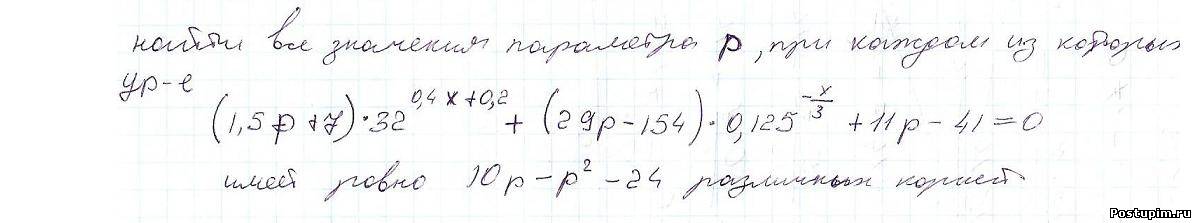 найти все значения параметра p, при каждом из которых
ур-е
(1,5p+7)·32^{0,4x+0,2} + (29p-154)·0,125^{-x/3} + 11p - 41 = 0
имеет ровно 10p - p² - 24 различных корней
Postupim.ru